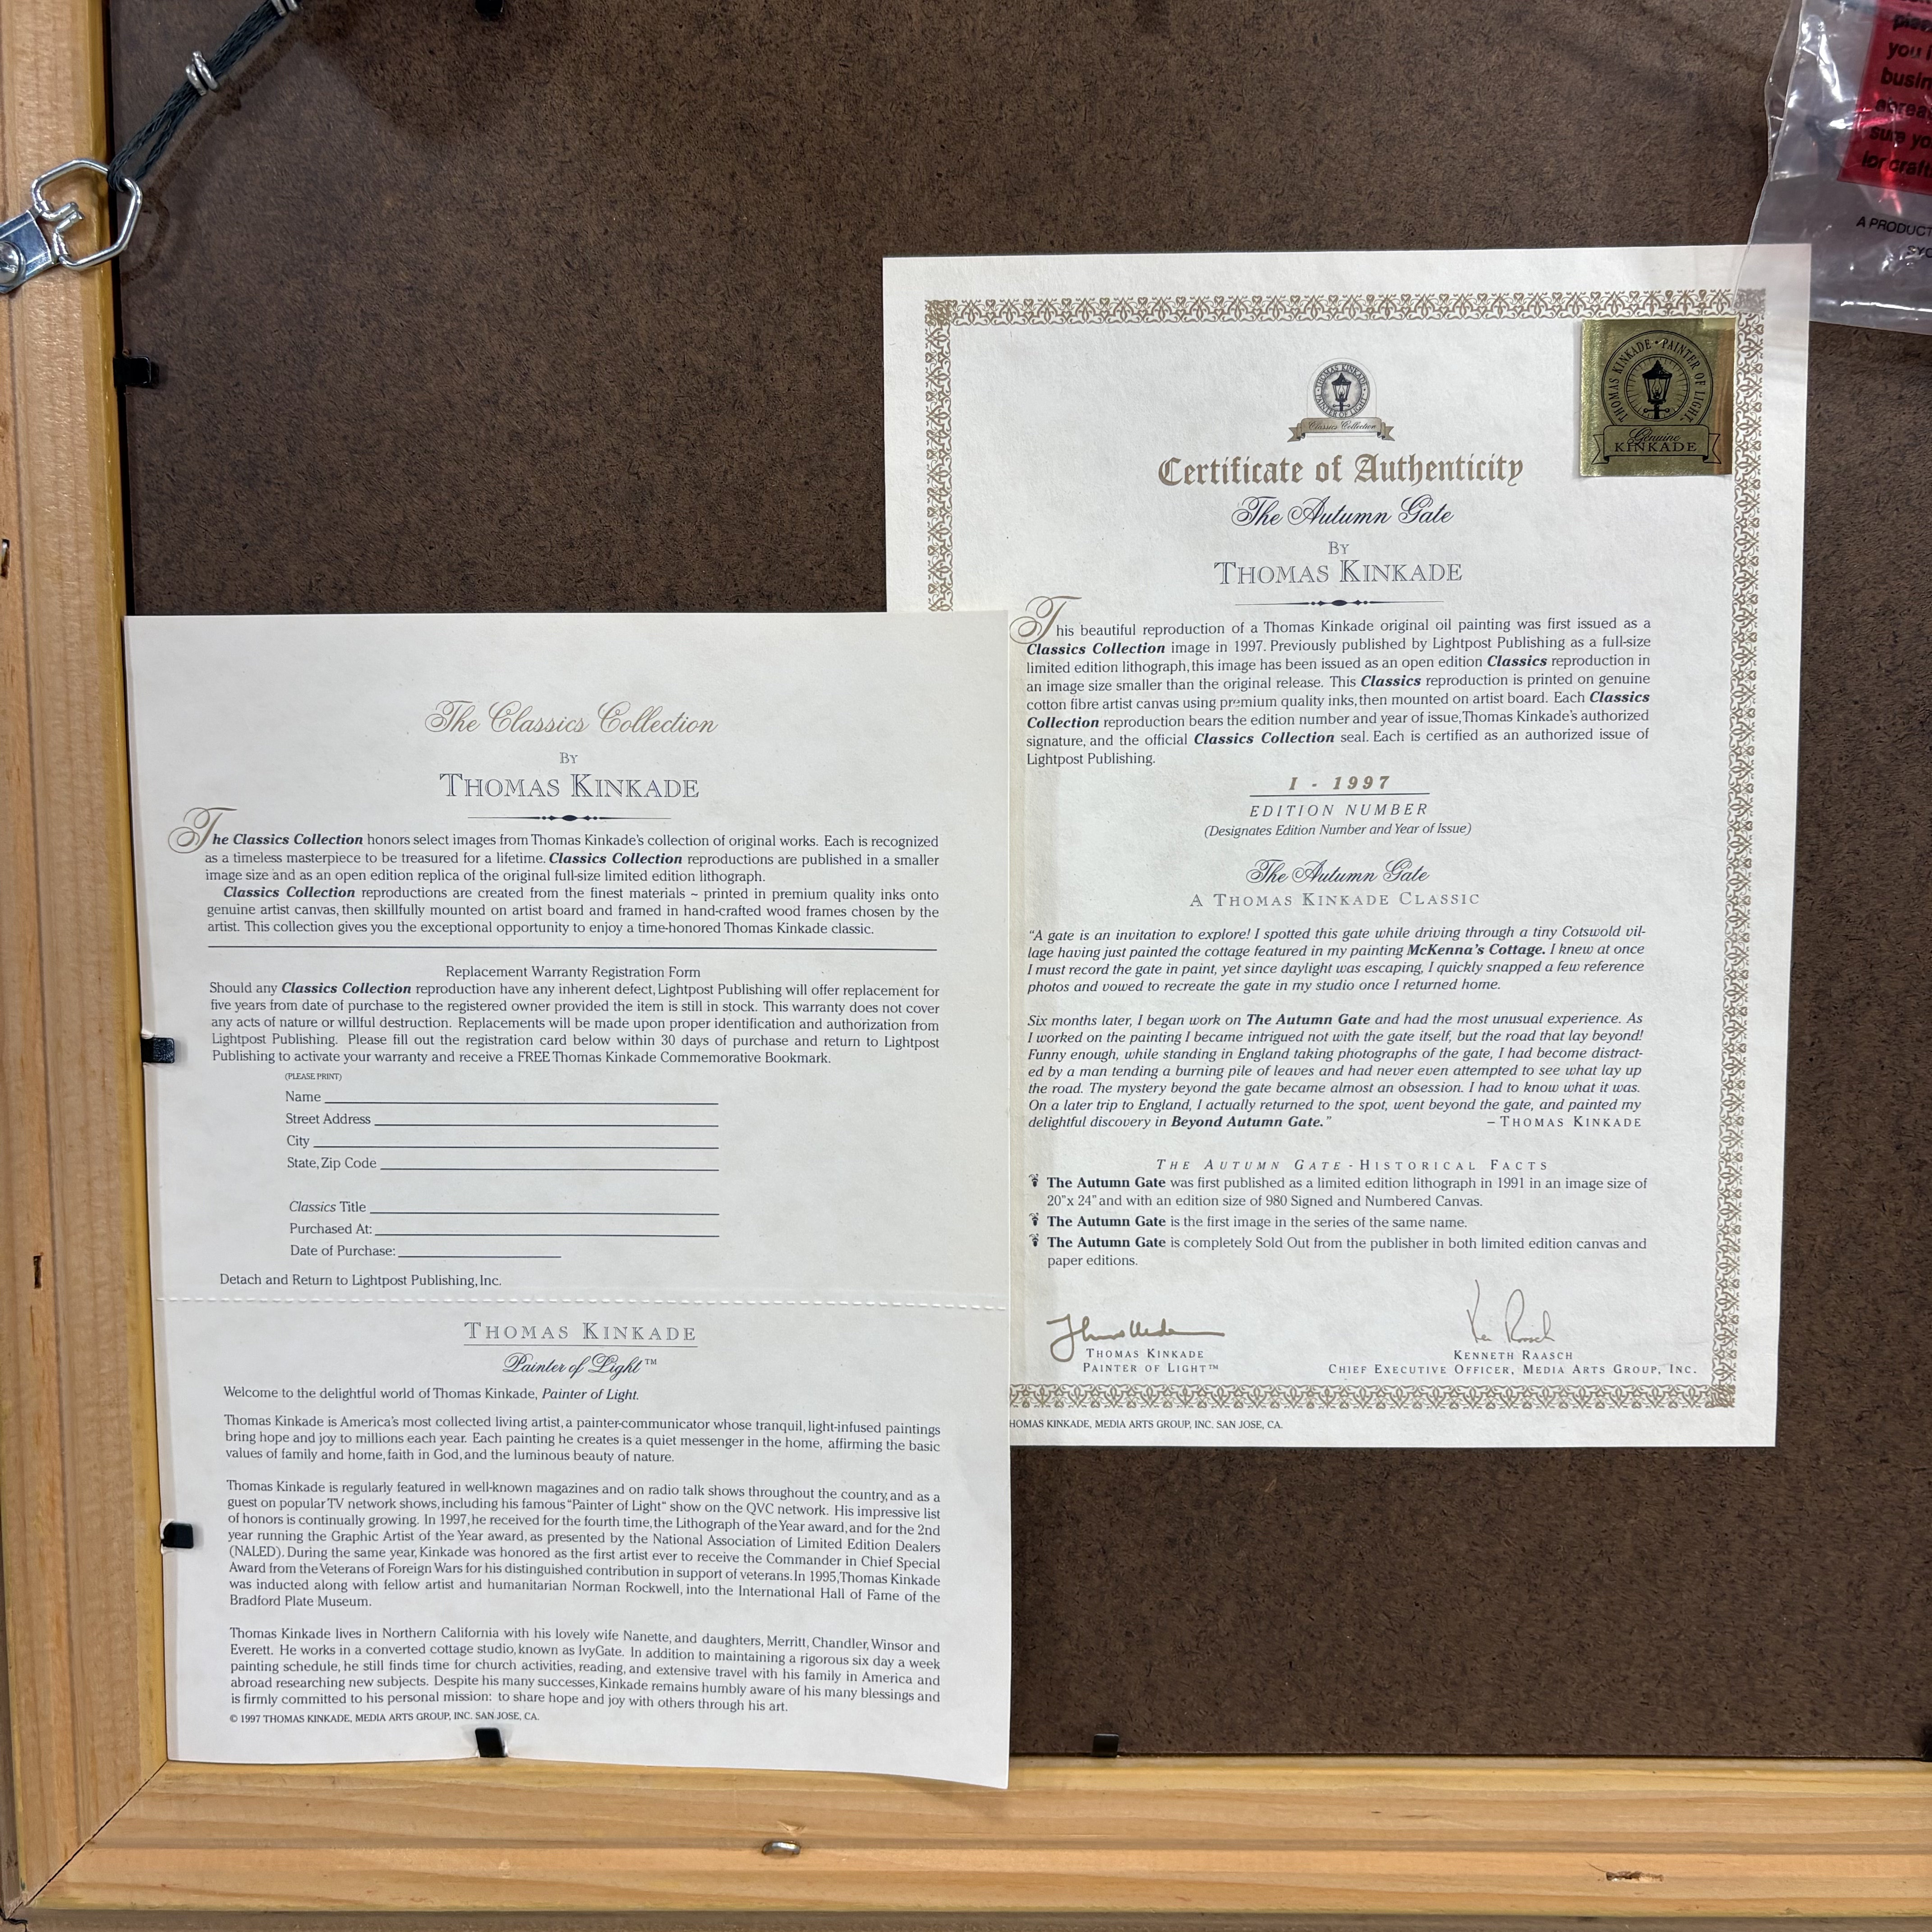 The Classics Collection
BY
THOMAS KINKADE
The Classics Collection honors select images from Thomas Kinkade's collection of original works. Each is recognized
as a timeless masterpiece to be treasured for a lifetime. Classics Collection reproductions are published in a smaller
image size and as an open edition replica of the original full-size limited edition lithograph.
Classics Collection reproductions are created from the finest materials ~ printed in premium quality inks onto
genuine artist canvas, then skillfully mounted on artist board and framed in hand-crafted wood frames chosen by the
artist. This collection gives you the exceptional opportunity to enjoy a time-honored Thomas Kinkade classic.
Replacement Warranty Registration Form
Should any Classics Collection reproduction have any inherent defect, Lightpost Publishing will offer replacement for
five years from date of purchase to the registered owner provided the item is still in stock. This warranty does not cover
any acts of nature or willful destruction. Replacements will be made upon proper identification and authorization from
Lightpost Publishing. Please fill out the registration card below within 30 days of purchase and return to Lightpost
Publishing to activate your warranty and receive a FREE Thomas Kinkade Commemorative Bookmark.
(PLEASE PRINT)
Name
Street Address
City
State, Zip Code
Classics Title
Purchased At:
Date of Purchase:
Detach and Return to Lightpost Publishing, Inc.
THOMAS KINKADE
Painter of Light™
Welcome to the delightful world of Thomas Kinkade, Painter of Light.
Thomas Kinkade is America's most collected living artist, a painter-communicator whose tranquil, light-infused paintings
bring hope and joy to millions each year. Each painting he creates is a quiet messenger in the home, affirming the basic
values of family and home, faith in God, and the luminous beauty of nature.
Thomas Kinkade is regularly featured in well-known magazines and on radio talk shows throughout the country, and as a
guest on popular TV network shows, including his famous "Painter of Light" show on the QVC network. His impressive list
of honors is continually growing. In 1997, he received for the fourth time, the Lithograph of the Year award, and for the 2nd
year running the Graphic Artist of the Year award, as presented by the National Association of Limited Edition Dealers
(NALED). During the same year, Kinkade was honored as the first artist ever to receive the Commander in Chief Special
Award from the Veterans of Foreign Wars for his distinguished contribution in support of veterans. In 1995, Thomas Kinkade
was inducted along with fellow artist and humanitarian Norman Rockwell, into the International Hall of Fame of the
Bradford Plate Museum.
Thomas Kinkade lives in Northern California with his lovely wife Nanette, and daughters, Merritt, Chandler, Winsor and
Everett. He works in a converted cottage studio, known as IvyGate. In addition to maintaining a rigorous six day a week
painting schedule, he still finds time for church activities, reading, and extensive travel with his family in America and
abroad researching new subjects. Despite his many successes, Kinkade remains humbly aware of his many blessings and
is firmly committed to his personal mission: to share hope and joy with others through his art.
© 1997 THOMAS KINKADE, MEDIA ARTS GROUP, INC. SAN JOSE, CA.
THOMAS KINKADE • PAINTER OF LIGHT
Classics Collection
THOMAS KINKADE • PAINTER OF LIGHT
Genuine
KINKADE
Certificate of Authenticity
The Autumn Gate
BY
THOMAS KINKADE
This beautiful reproduction of a Thomas Kinkade original oil painting was first issued as a
Classics Collection image in 1997. Previously published by Lightpost Publishing as a full-size
limited edition lithograph, this image has been issued as an open edition Classics reproduction in
an image size smaller than the original release. This Classics reproduction is printed on genuine
cotton fibre artist canvas using premium quality inks, then mounted on artist board. Each Classics
Collection reproduction bears the edition number and year of issue, Thomas Kinkade's authorized
signature, and the official Classics Collection seal. Each is certified as an authorized issue of
Lightpost Publishing.
I - 1997
EDITION NUMBER
(Designates Edition Number and Year of Issue)
The Autumn Gate
A THOMAS KINKADE CLASSIC
"A gate is an invitation to explore! I spotted this gate while driving through a tiny Cotswold vil-
lage having just painted the cottage featured in my painting McKenna's Cottage. I knew at once
I must record the gate in paint, yet since daylight was escaping, I quickly snapped a few reference
photos and vowed to recreate the gate in my studio once I returned home.
Six months later, I began work on The Autumn Gate and had the most unusual experience. As
I worked on the painting I became intrigued not with the gate itself, but the road that lay beyond!
Funny enough, while standing in England taking photographs of the gate, I had become distract-
ed by a man tending a burning pile of leaves and had never even attempted to see what lay up
the road. The mystery beyond the gate became almost an obsession. I had to know what it was.
On a later trip to England, I actually returned to the spot, went beyond the gate, and painted my
delightful discovery in Beyond Autumn Gate." – THOMAS KINKADE
THE AUTUMN GATE - HISTORICAL FACTS
The Autumn Gate was first published as a limited edition lithograph in 1991 in an image size of
20"x 24" and with an edition size of 980 Signed and Numbered Canvas.
The Autumn Gate is the first image in the series of the same name.
The Autumn Gate is completely Sold Out from the publisher in both limited edition canvas and
paper editions.
Ken Raasch
THOMAS KINKADE
PAINTER OF LIGHT™
KENNETH RAASCH
CHIEF EXECUTIVE OFFICER, MEDIA ARTS GROUP, INC.
HOMAS KINKADE, MEDIA ARTS GROUP, INC. SAN JOSE, CA.
you
busin
sure yo
for craft
A PRODUCT